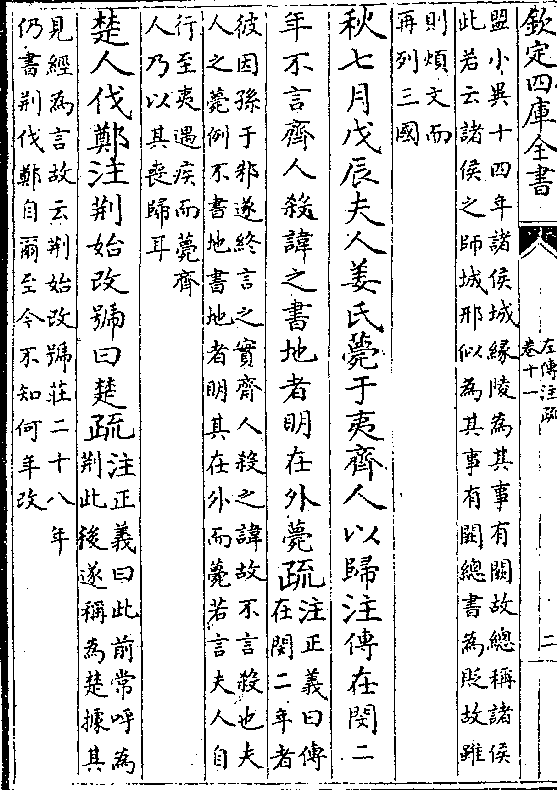 欽定四庫全書
左傳注疏
卷十一
二
盟小異十四年諸侯城緣陵為其事有闕故總稱諸侯
此若云諸侯之師城邢似為其事有闕總書為貶故雖
則煩文而
再列三國
秋七月戊辰夫人姜氏薨于夷齊人以歸注傳在閔二
年不言齊人殺諱之書地者明在外薨疏注正義曰傳
在閔二年者
彼因孫于邾遂終言之實齊人殺之諱故不言殺也夫
人之薨例不書地書地者明其在外而薨若言夫人自
行至夷遇疾而薨齊
人乃以其喪歸耳
楚人伐鄭注荆始改號曰楚疏注正義曰此前常呼為
荆此後遂稱為楚據其
見經為言故云荆始改號莊二十八年
仍書荆伐鄭自爾至今不知何年改